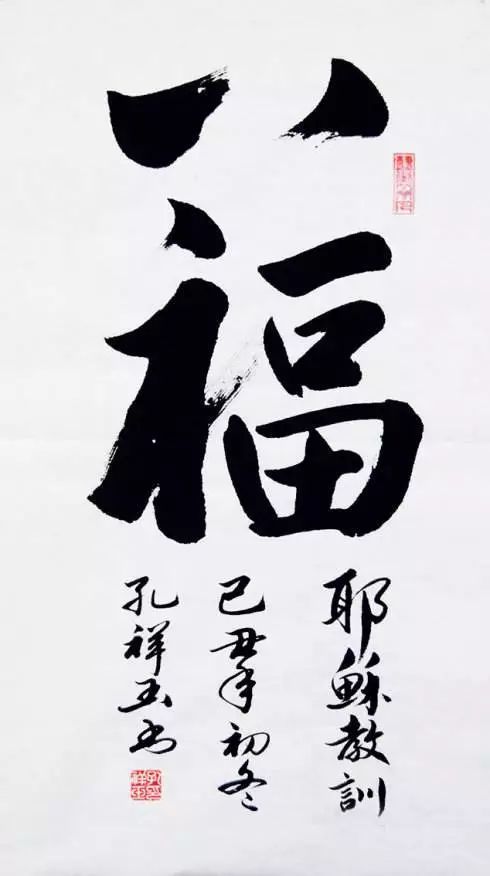 八福
耶稣教訓
己丑年初冬
孔祥玉书